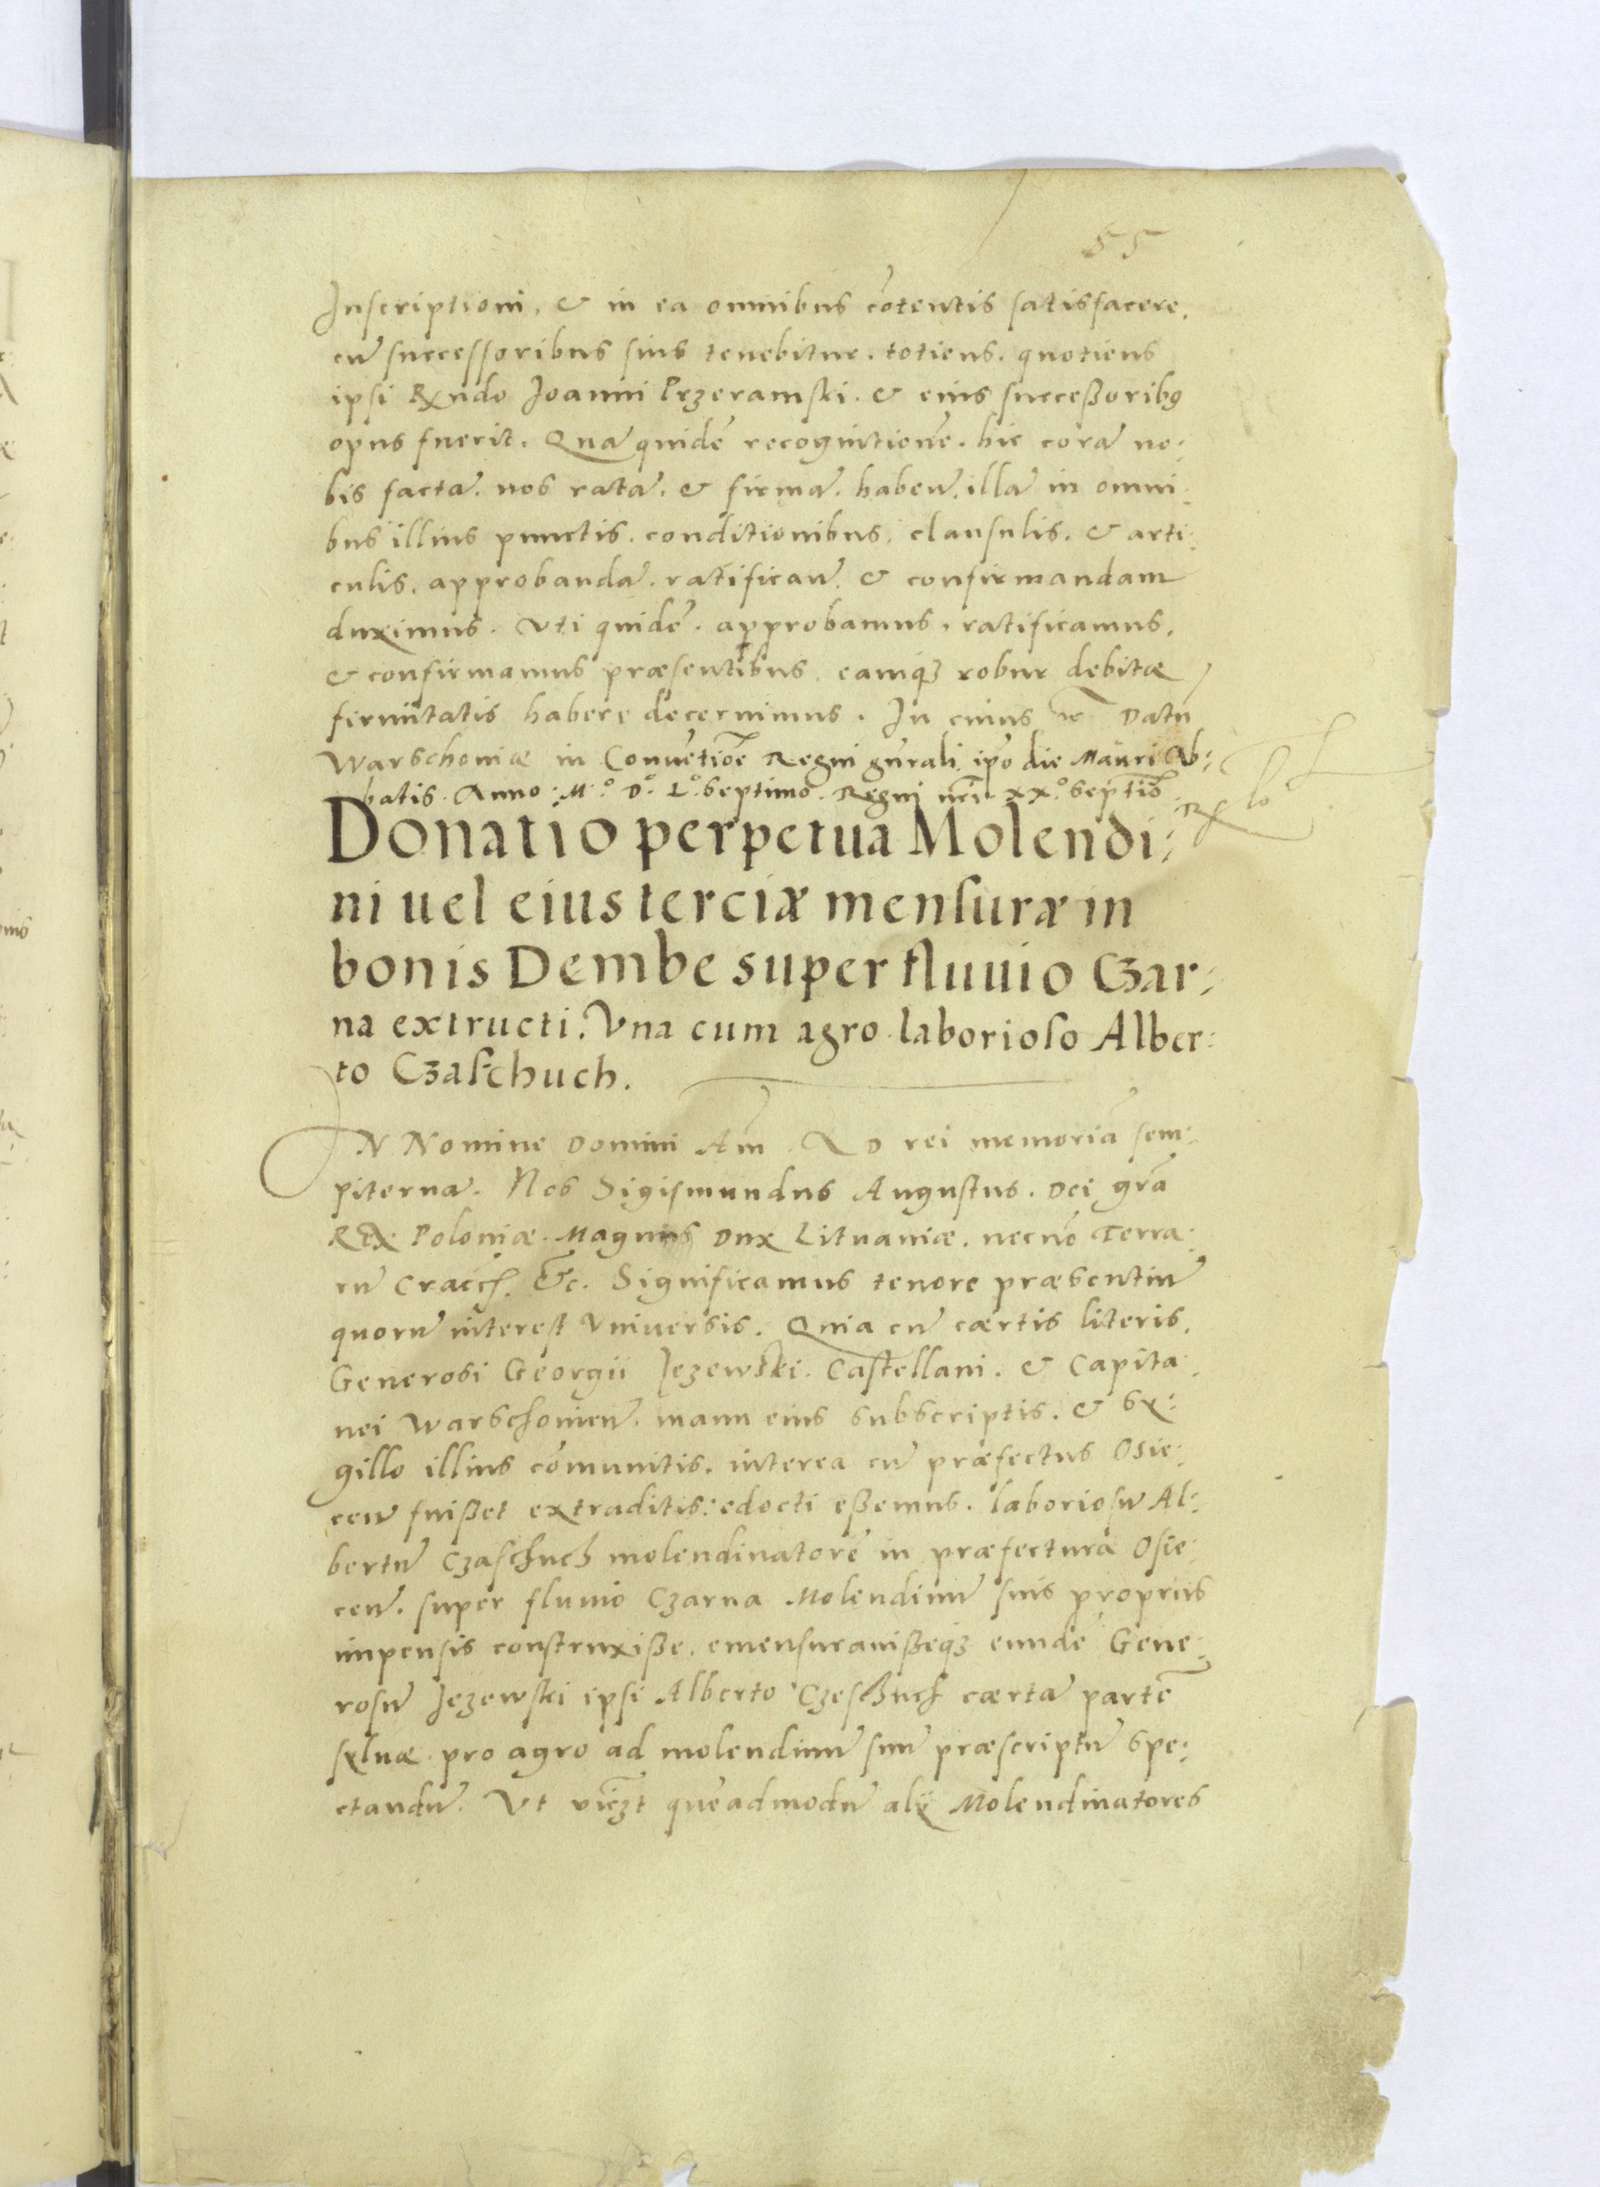 55
Inscriptioni, & in ea omnibus cōtentis satisfacere,
cū successoribus suis tenebitur. totiens. quotiens
ipsi Rndo Joanni Przeramski. & eius succeßoribꝰ
opus fuerit. Quā quidē recognitionē. hic corā no:
bis factā. nos ratā. & firmā. habeñ. illā in omni:
bus illius punctis. conditionibus, clausulis. & arti:
culis. approbandā. ratificañ. & confirmandam
duximus. Uti quidē. approbamus. ratificamus,
& confirmamus præsentibus, eamqȝ robur debitæ
firmitatis habere decernimus. In cuius rē Datū
Warschoniæ in Conuētiōe Regni gn̄rali, ip̄o die Mauri Ab:
batis. Anno: Mº. Dº. Lº. septimo. Regni nr̄i xxº. septiō
Donatio perpetua Molendi:
ni uel eius terciæ mensuræ in
bonis Dembe super fluuio Czar:
na extructi. Vna cum agro laborioso Alber:
to Czaschuch.
IN Nomine Domini Am̄. AD rei memoriā sem:
piternā. Nos Sigismundus Augustus. Dei gr̄a
REX Poloniæ. Magnus Dux Lituaniæ. necnō Terra:
rū Cracch. &c. Significamus tenore præsentiū
quorū interest Vniuersis. Quia cū cærtis literis,
Generosi Georgii Jezewski. Castellani. & Capita:
nei Warschonieñ. manu eius subscriptis. & sy:
gillo illius cōmunitis. interea cū præfectus Osie:
ceñ fuißet extraditis: edocti eßemus. laboriosū Al:
bertū Czaschuch molendinatorē in præfecturā Osie:
ceñ. super fluuio Czarna Molendinū suis propriis
impensis construxiße, emensurauißeqȝ eundē Gene:
rosū Jezewski ipsi Alberto Czeschuch cærtā partē
syluæ pro agro ad molendinū suū præscriptū spe:
ctandū. Ut vicȝt queadmodū alij Molendinatores